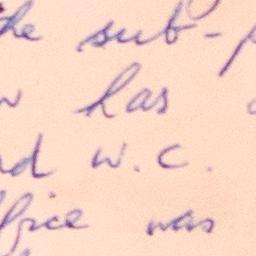 the sub-p
w has
nd w.c.
ffice was